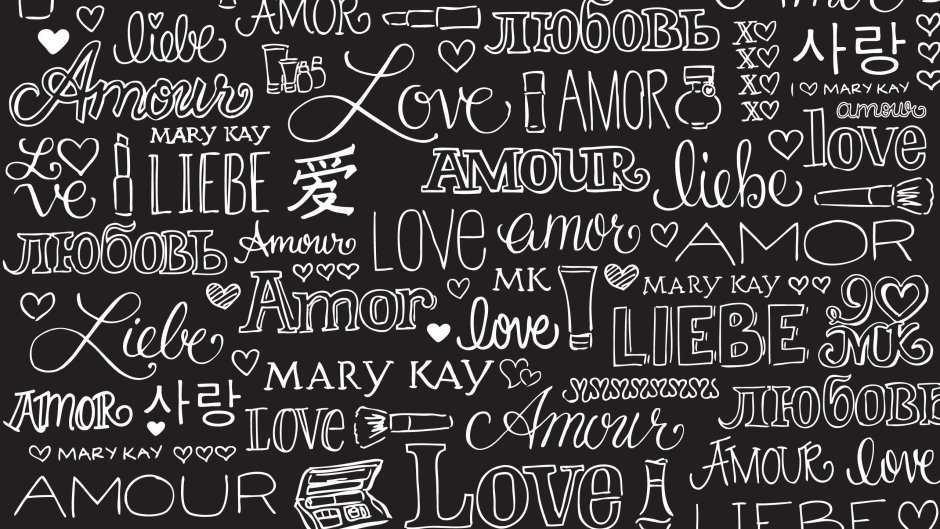 Amor
AMOR
ЛЮБОВЬ
liebe
X♡
X♡
X♡
X♡
사랑
I ♡ MARY KAY
Amour
Love
AMOR
amour
love
MARY KAY
L♡ve
LIEBE
爱
AMOUR
liebe
ЛЮБОВЬ
Amour
LOVE
amor
AMOR
Amor
MK
MARY KAY
Liebe
love
LIEBE
I♡
MK
MARY KAY
AMOR
사랑
LOVE
Amour
ЛЮБОВЬ
MARY KAY
AMOUR
Love
AMOUR
love
LIEBE